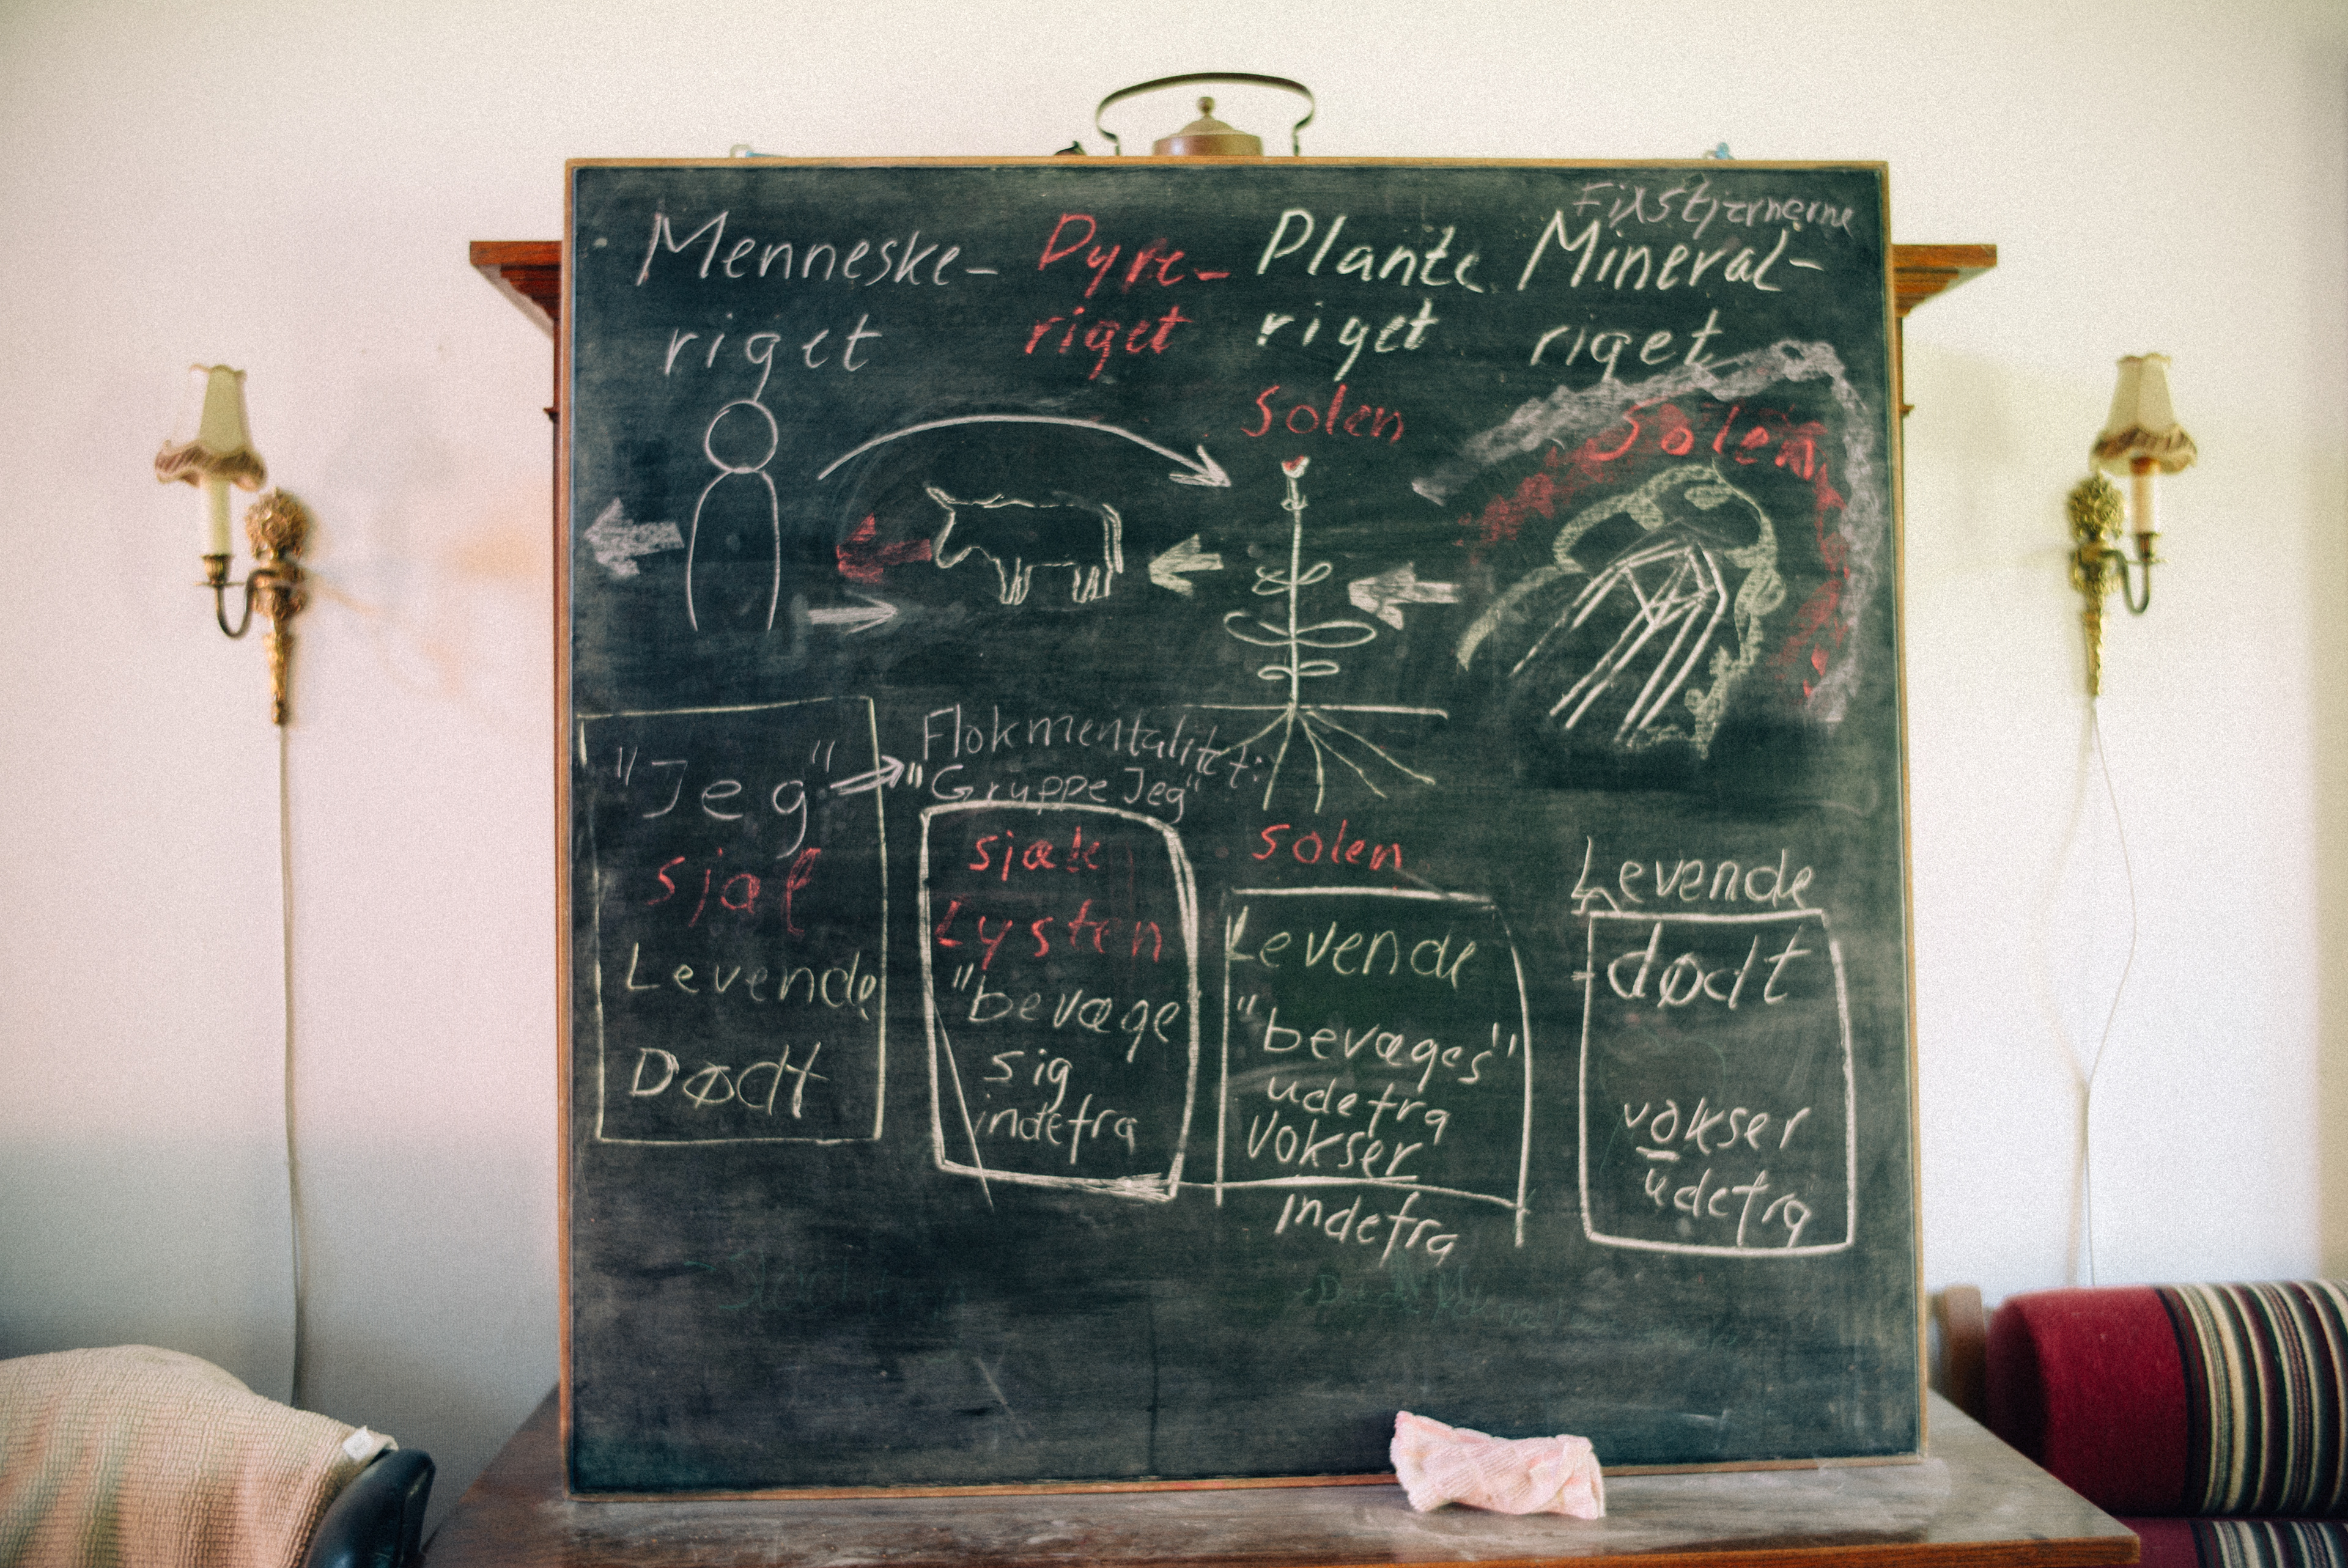 Fixstjernerne
Menneske-
riget
Dyre-
riget
Plante
riget
Mineral-
riget
Solen
Solen
"Jeg"
sjæl
Levende
Dødt
Flokmentalitet:
"Gruppe Jeg"
sjæle
Lysten
"bevæge
sig
indefra
solen
Levende
"bevæges"
udefra
Vokser
indefra
Levende
dødt
vokser
udefra